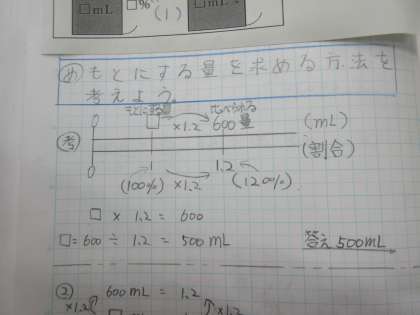 □mL □% (1) □mL
め もとにする量を求める方法を
考えよう。
もとにする量 比べられる
□ ×1.2 600 量 (mL)
考 (割合)
1 1.2
(100%) ×1.2 (120%)
□ × 1.2 = 600
□ = 600 ÷ 1.2 = 500 mL 答え 500mL
② 600 mL = 1.2
×1.2 ×1.2